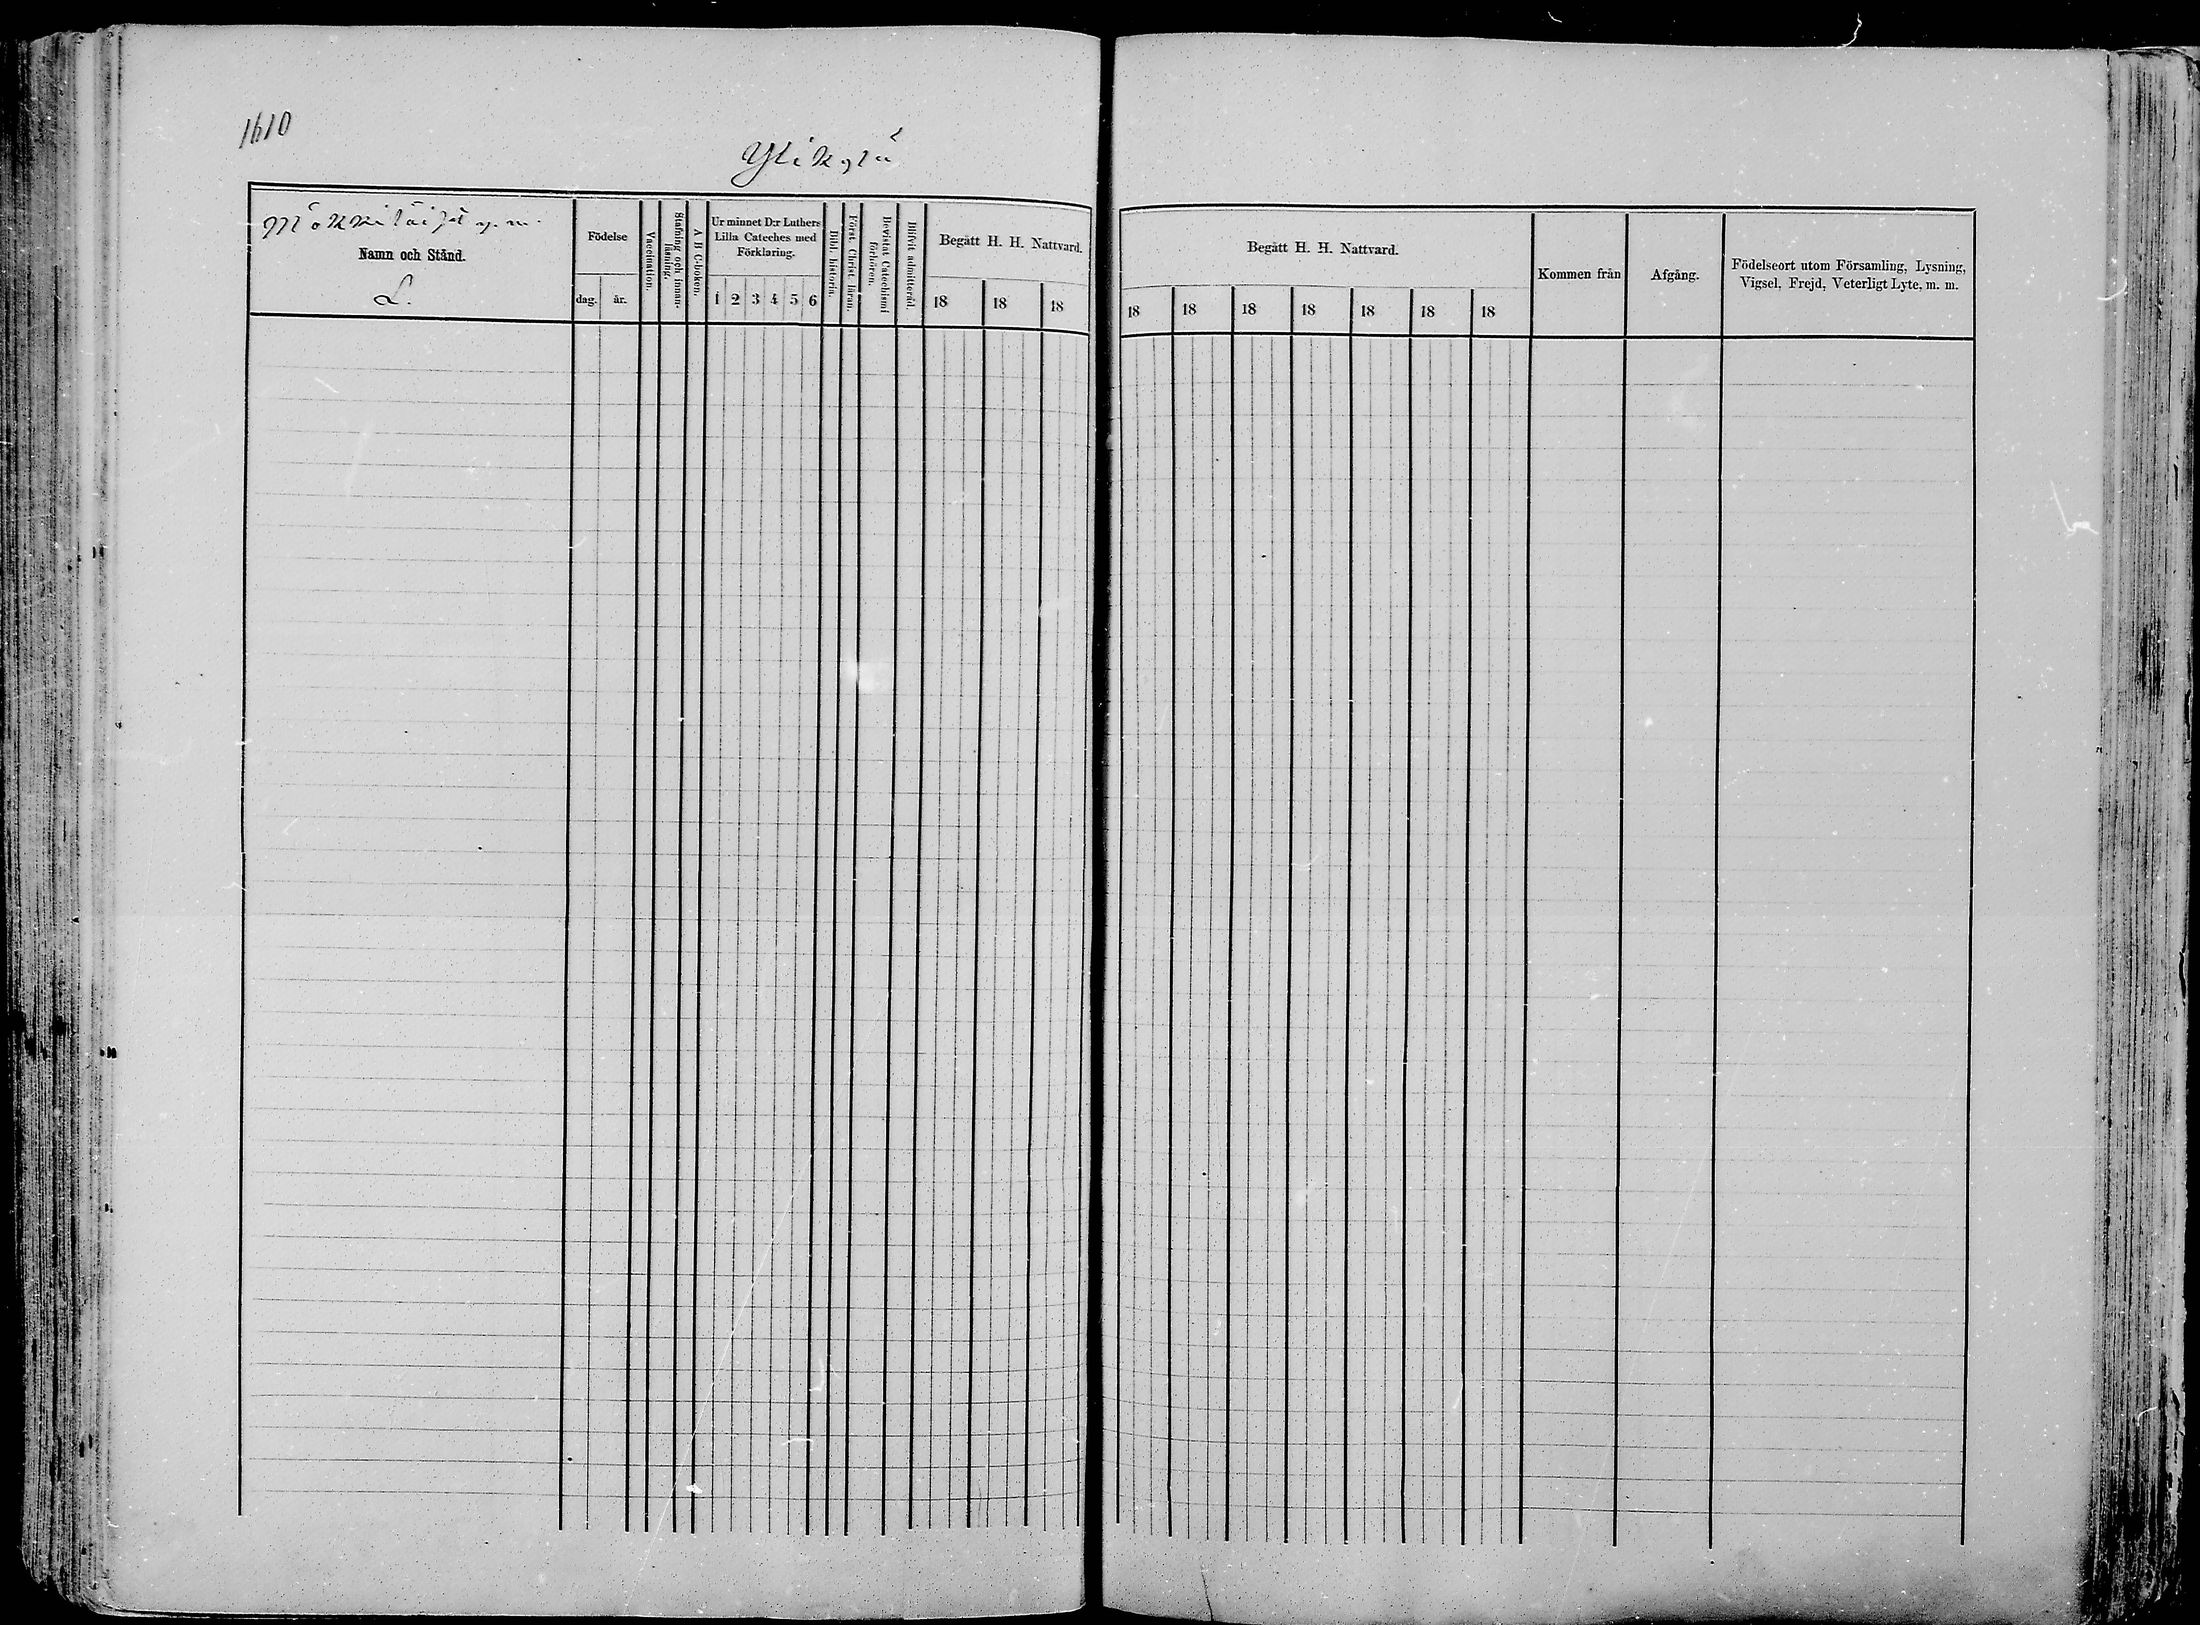 1610
Ylikylä
Mökkiläiset y. m.
Namn och Stånd.
L.
Födelse
dag. år.
Vaccination.
Stafning och innan-
läsning.
A B C-boken.
Ur minnet D:r Luthers
Lilla Cateches med
Förklaring.
1 2 3 4 5 6
Bibl. historia.
Först. Christ. läran.
Bevistat Catechismi
förhören.
Blifvit admitteräd.
Begått H. H. Nattvard.
18 18 18
Begått H. H. Nattvard.
18 18 18 18 18 18 18
Kommen från
Afgång.
Födelseort utom Församling, Lysning,
Vigsel, Frejd, Veterligt Lyte, m. m.